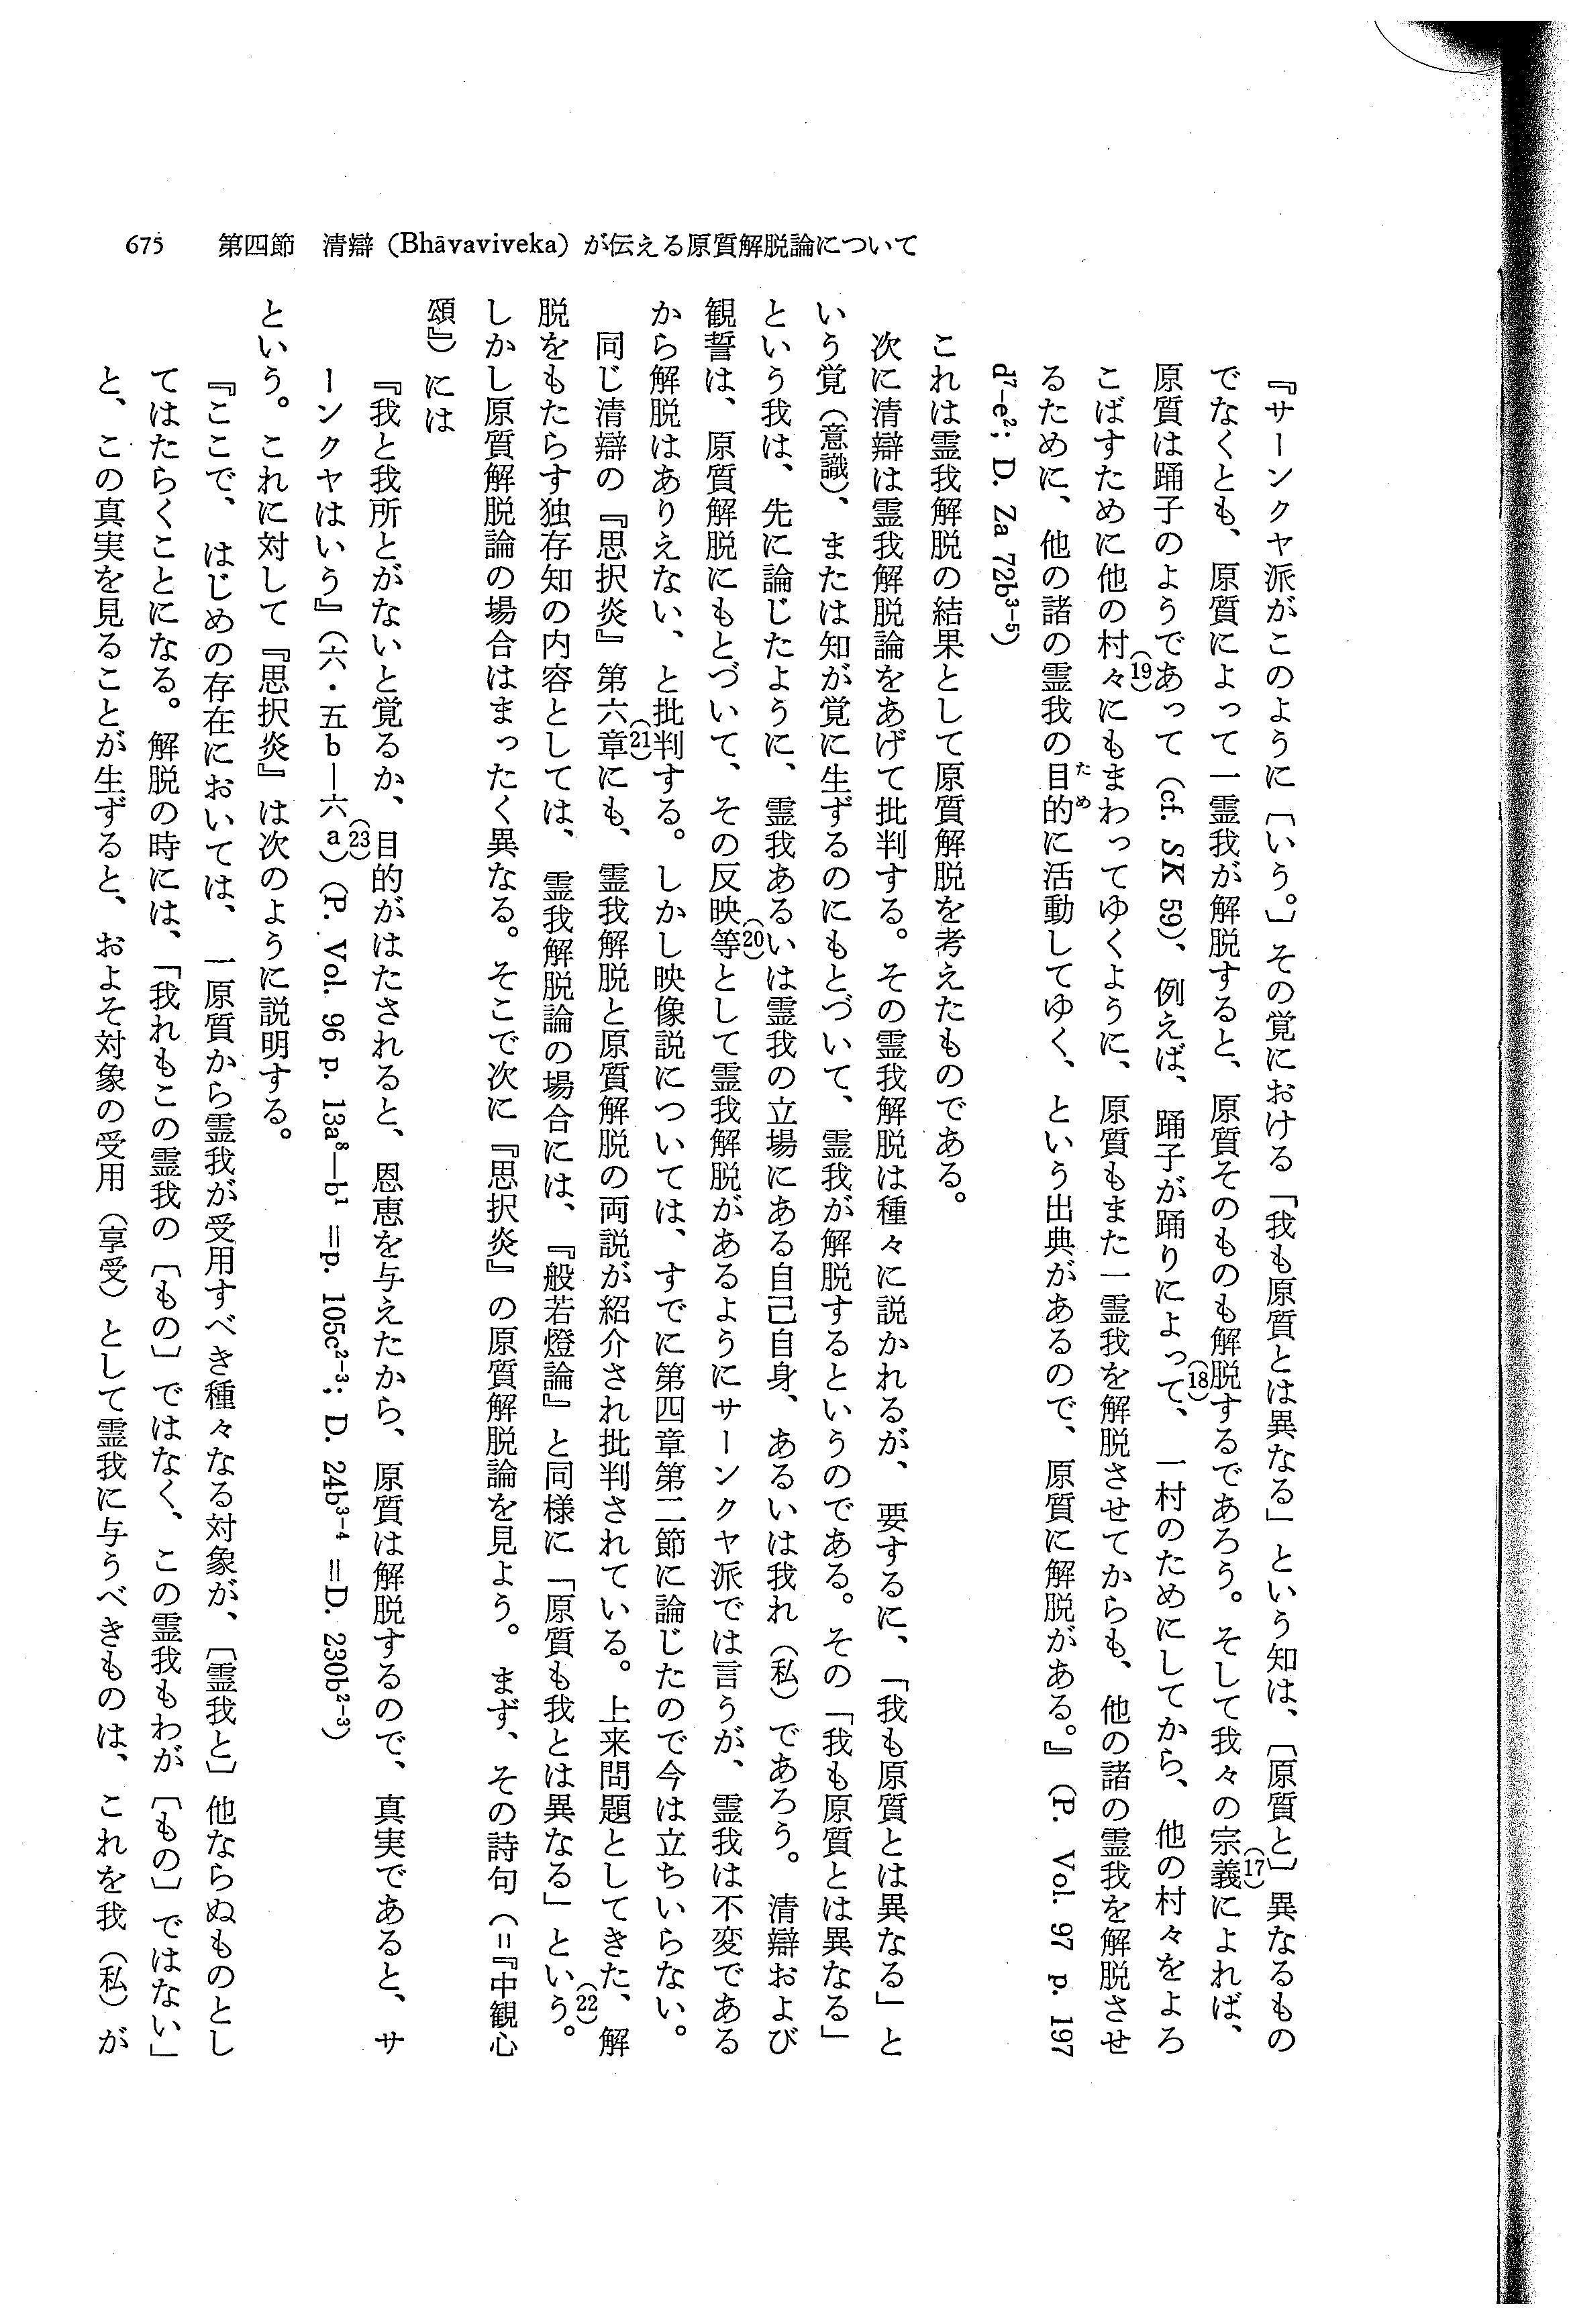 675　第四節　清辯（Bhāvaviveka）が伝える原質解脱論について
『サーンクヤ派がこのように〔いう。〕その覚における「我も原質とは異なる」という知は、〔原質と〕異なるもの
でなくとも、原質によって一霊我が解脱すると、原質そのものも解脱(18)するであろう。そして我々の宗義(17)によれば、
原質は踊子のようであって（cf. SK 59）、例えば、踊子が踊りによって、一村のためにしてから、他の村々をよろ
こばすために他の村々(19)にもまわってゆくように、原質もまた一霊我を解脱させてからも、他の諸の霊我を解脱させ
るために、他の諸の霊我の目的(ため)に活動してゆく、という出典があるので、原質に解脱がある。』（P. Vol. 97 p. 197
d⁷–e²; D. Za 72b³⁻⁵）
これは霊我解脱の結果として原質解脱を考えたものである。
次に清辯は霊我解脱論をあげて批判する。その霊我解脱は種々に説かれるが、要するに、「我も原質とは異なる」と
いう覚（意識）、または知が覚に生ずるのにもとづいて、霊我が解脱するというのである。その「我も原質とは異なる」
という我は、先に論じたように、霊我あるいは霊我の立場にある自己自身、あるいは我れ（私）であろう。清辯および
観誓は、原質解脱にもとづいて、その反映等(20)として霊我解脱があるようにサーンクヤ派では言うが、霊我は不変である
から解脱はありえない、と批判(21)する。しかし映像説については、すでに第四章第二節に論じたので今は立ちいらない。
同じ清辯の『思択炎』第六章にも、霊我解脱と原質解脱の両説が紹介され批判されている。上来問題としてきた、解
脱をもたらす独存知の内容としては、霊我解脱論の場合には、『般若燈論』と同様に「原質も我とは異なる」という(22)。
しかし原質解脱論の場合はまったく異なる。そこで次に『思択炎』の原質解脱論を見よう。まず、その詩句（＝『中観心
頌』）には
『我と我所とがないと覚るか、目的がはたされると、恩恵を与えたから、原質は解脱するので、真実であると、サ
ーンクヤはいう』（六・五b―六a）(23)（P. Vol. 96 p. 13a⁸—b¹ ＝p. 105c²⁻³; D. 24b³⁻⁴ ＝D. 230b²⁻³）
という。これに対して『思択炎』は次のように説明する。
『ここで、はじめの存在においては、一原質から霊我が受用すべき種々なる対象が、〔霊我と〕他ならぬものとし
てはたらくことになる。解脱の時には、「我れもこの霊我の〔もの〕ではなく、この霊我もわが〔もの〕ではない」
と、この真実を見ることが生ずると、およそ対象の受用（享受）として霊我に与うべきものは、これを我（私）が